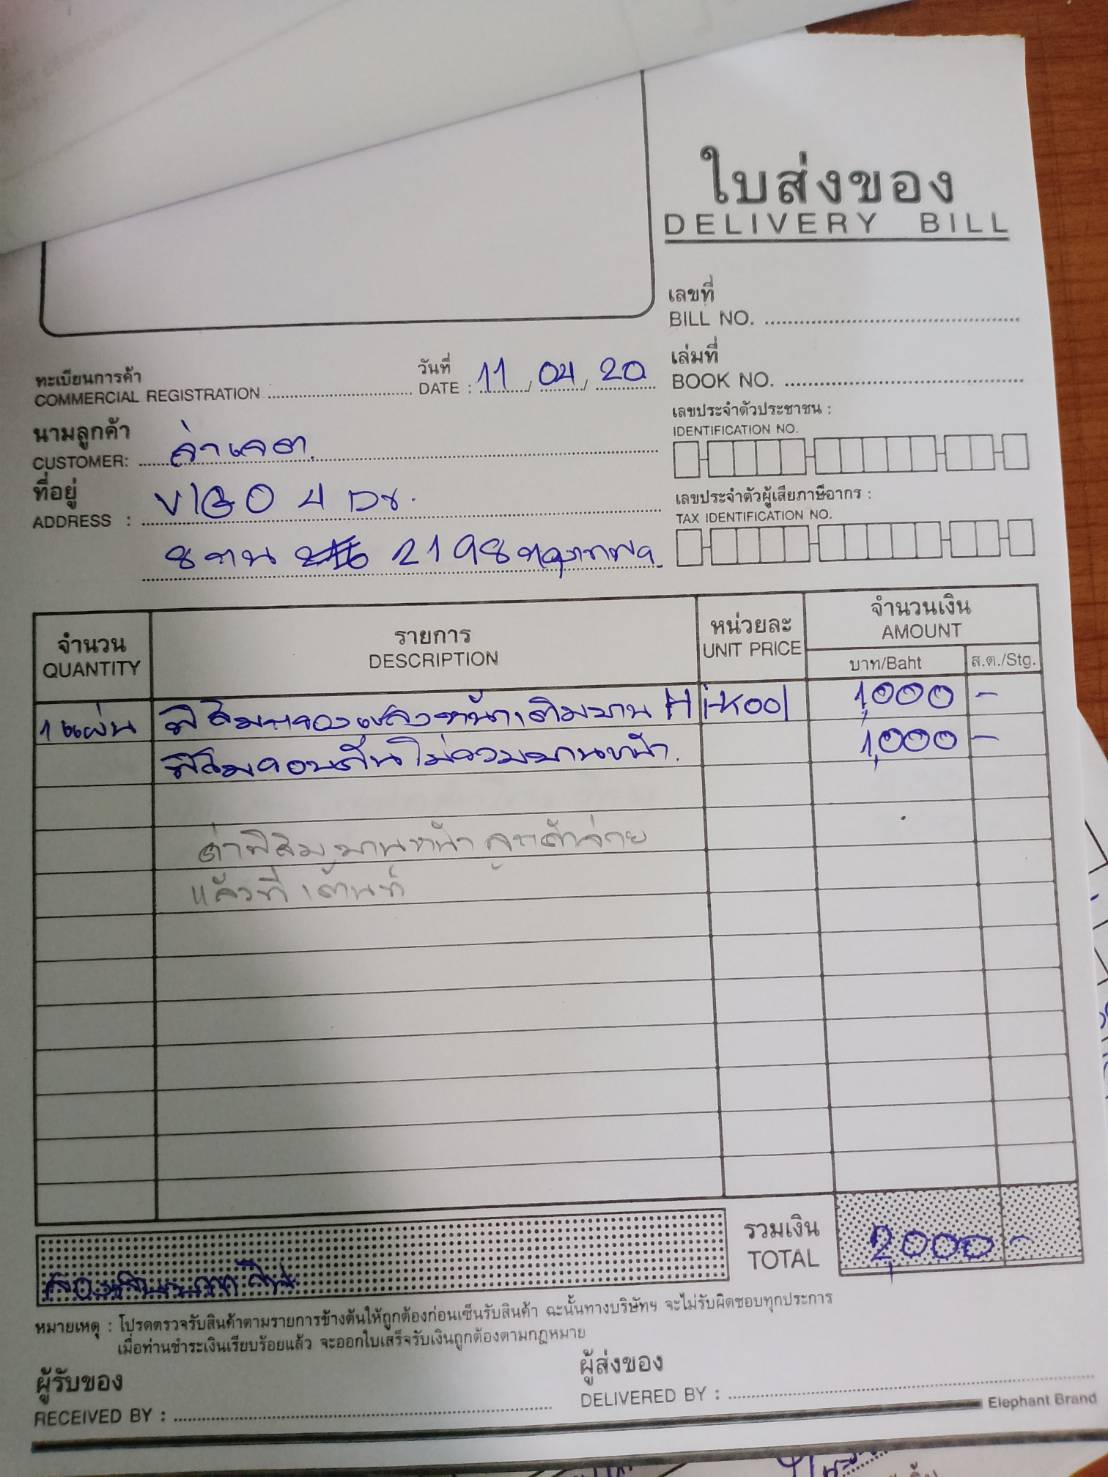 ใบส่งของ
DELIVERY BILL
เลขที่
BILL NO.
วันที่
DATE : 11 / 04 / 20
เล่มที่
BOOK NO.
ทะเบียนการค้า
COMMERCIAL REGISTRATION
เลขประจำตัวประชาชน :
IDENTIFICATION NO.
นามลูกค้า
CUSTOMER:
ที่อยู่
ADDRESS : VIGO 4 Dr.
เลขประจำตัวผู้เสียภาษีอากร :
TAX IDENTIFICATION NO.
2198
จำนวน
QUANTITY
รายการ
DESCRIPTION
หน่วยละ
UNIT PRICE
จำนวนเงิน
AMOUNT
บาท/Baht
ส.ต./Stg.
1 แผ่น ฟิล์ม เต็มบาน Hi-kool 1,000 -
ฟิล์มรอบคันไม่รวมบานหน้า. 1,000 -
ค่าฟิล์มบานหน้า ลูกค้าจ่าย
แล้วที่
รวมเงิน
TOTAL 2,000 -
หมายเหตุ : โปรดตรวจรับสินค้าตามรายการข้างต้นให้ถูกต้องก่อนเซ็นรับสินค้า ฉะนั้นทางบริษัทฯ จะไม่รับผิดชอบทุกประการ
เมื่อท่านชำระเงินเรียบร้อยแล้ว จะออกใบเสร็จรับเงินถูกต้องตามกฎหมาย
ผู้รับของ
RECEIVED BY :
ผู้ส่งของ
DELIVERED BY :
Elephant Brand